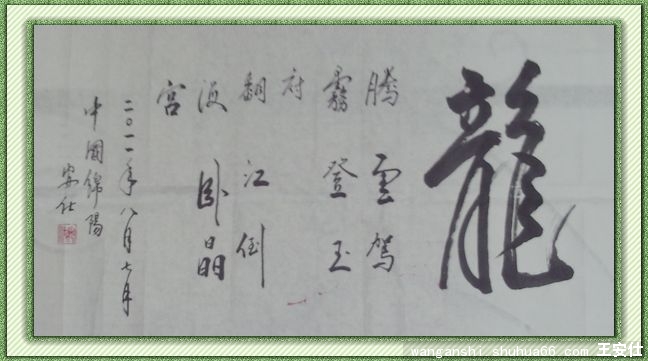 龍
騰雲駕
霧登玉
府
翻江倒
海卧晶
宮
二〇一一年八月七日
中國綿陽
安仕
wanganshi.shuhua66.com 王安仕